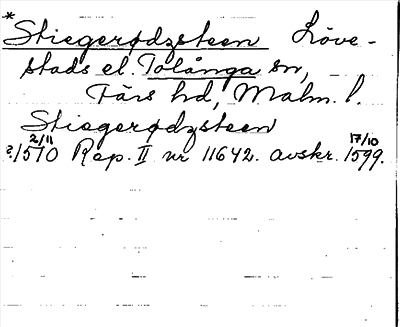 * Stiegerødzsteen Löve-
stads el. Tolånga sn,
Färs hd, Malm. l.
Stiegerødzsteen
?1510 2/11 Rep. II nr 11642. avskr. 1599. 17/10